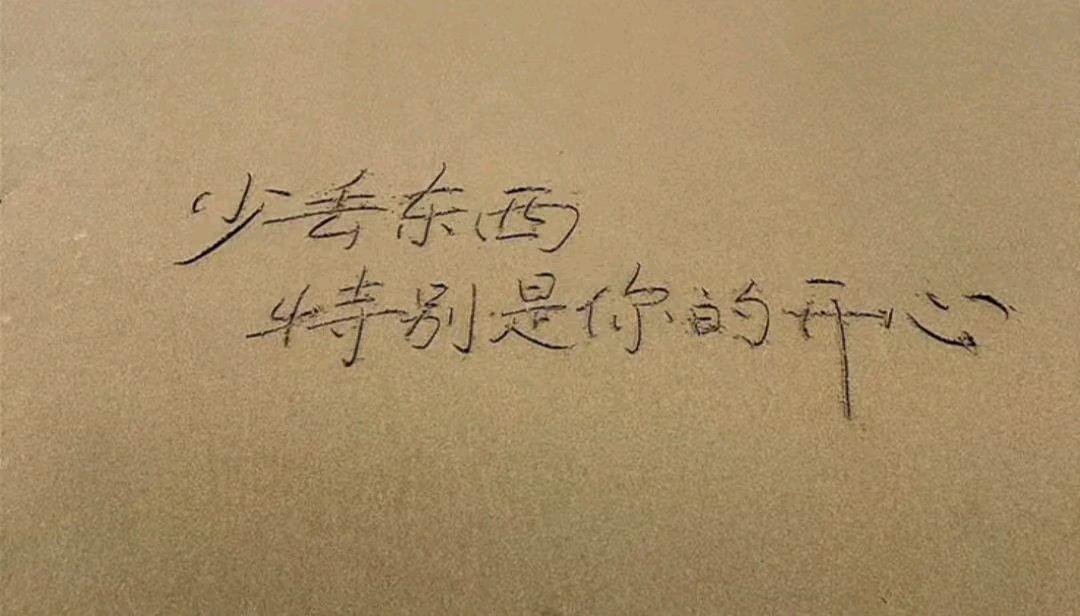 少丢东西
特别是你的开心